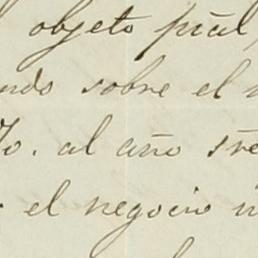 objeto pral,
ndo sobre el
%. al año sre
el negocio